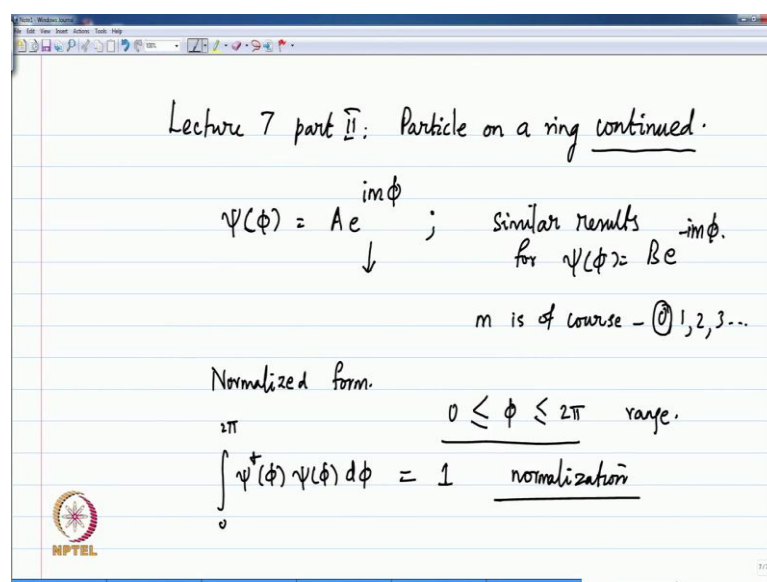 Note1 - Windows Journal
File Edit View Insert Actions Tools Help
Lecture 7 part II: Particle on a ring continued.
ψ(ϕ) = Ae^{imϕ} ; similar results
for ψ(ϕ) = Be^{-imϕ}.
m is of course – 0 1, 2, 3...
Normalized form.
0 ≤ ϕ ≤ 2π range.
∫_0^{2π} ψ*(ϕ) ψ(ϕ) dϕ = 1 normalization
NPTEL